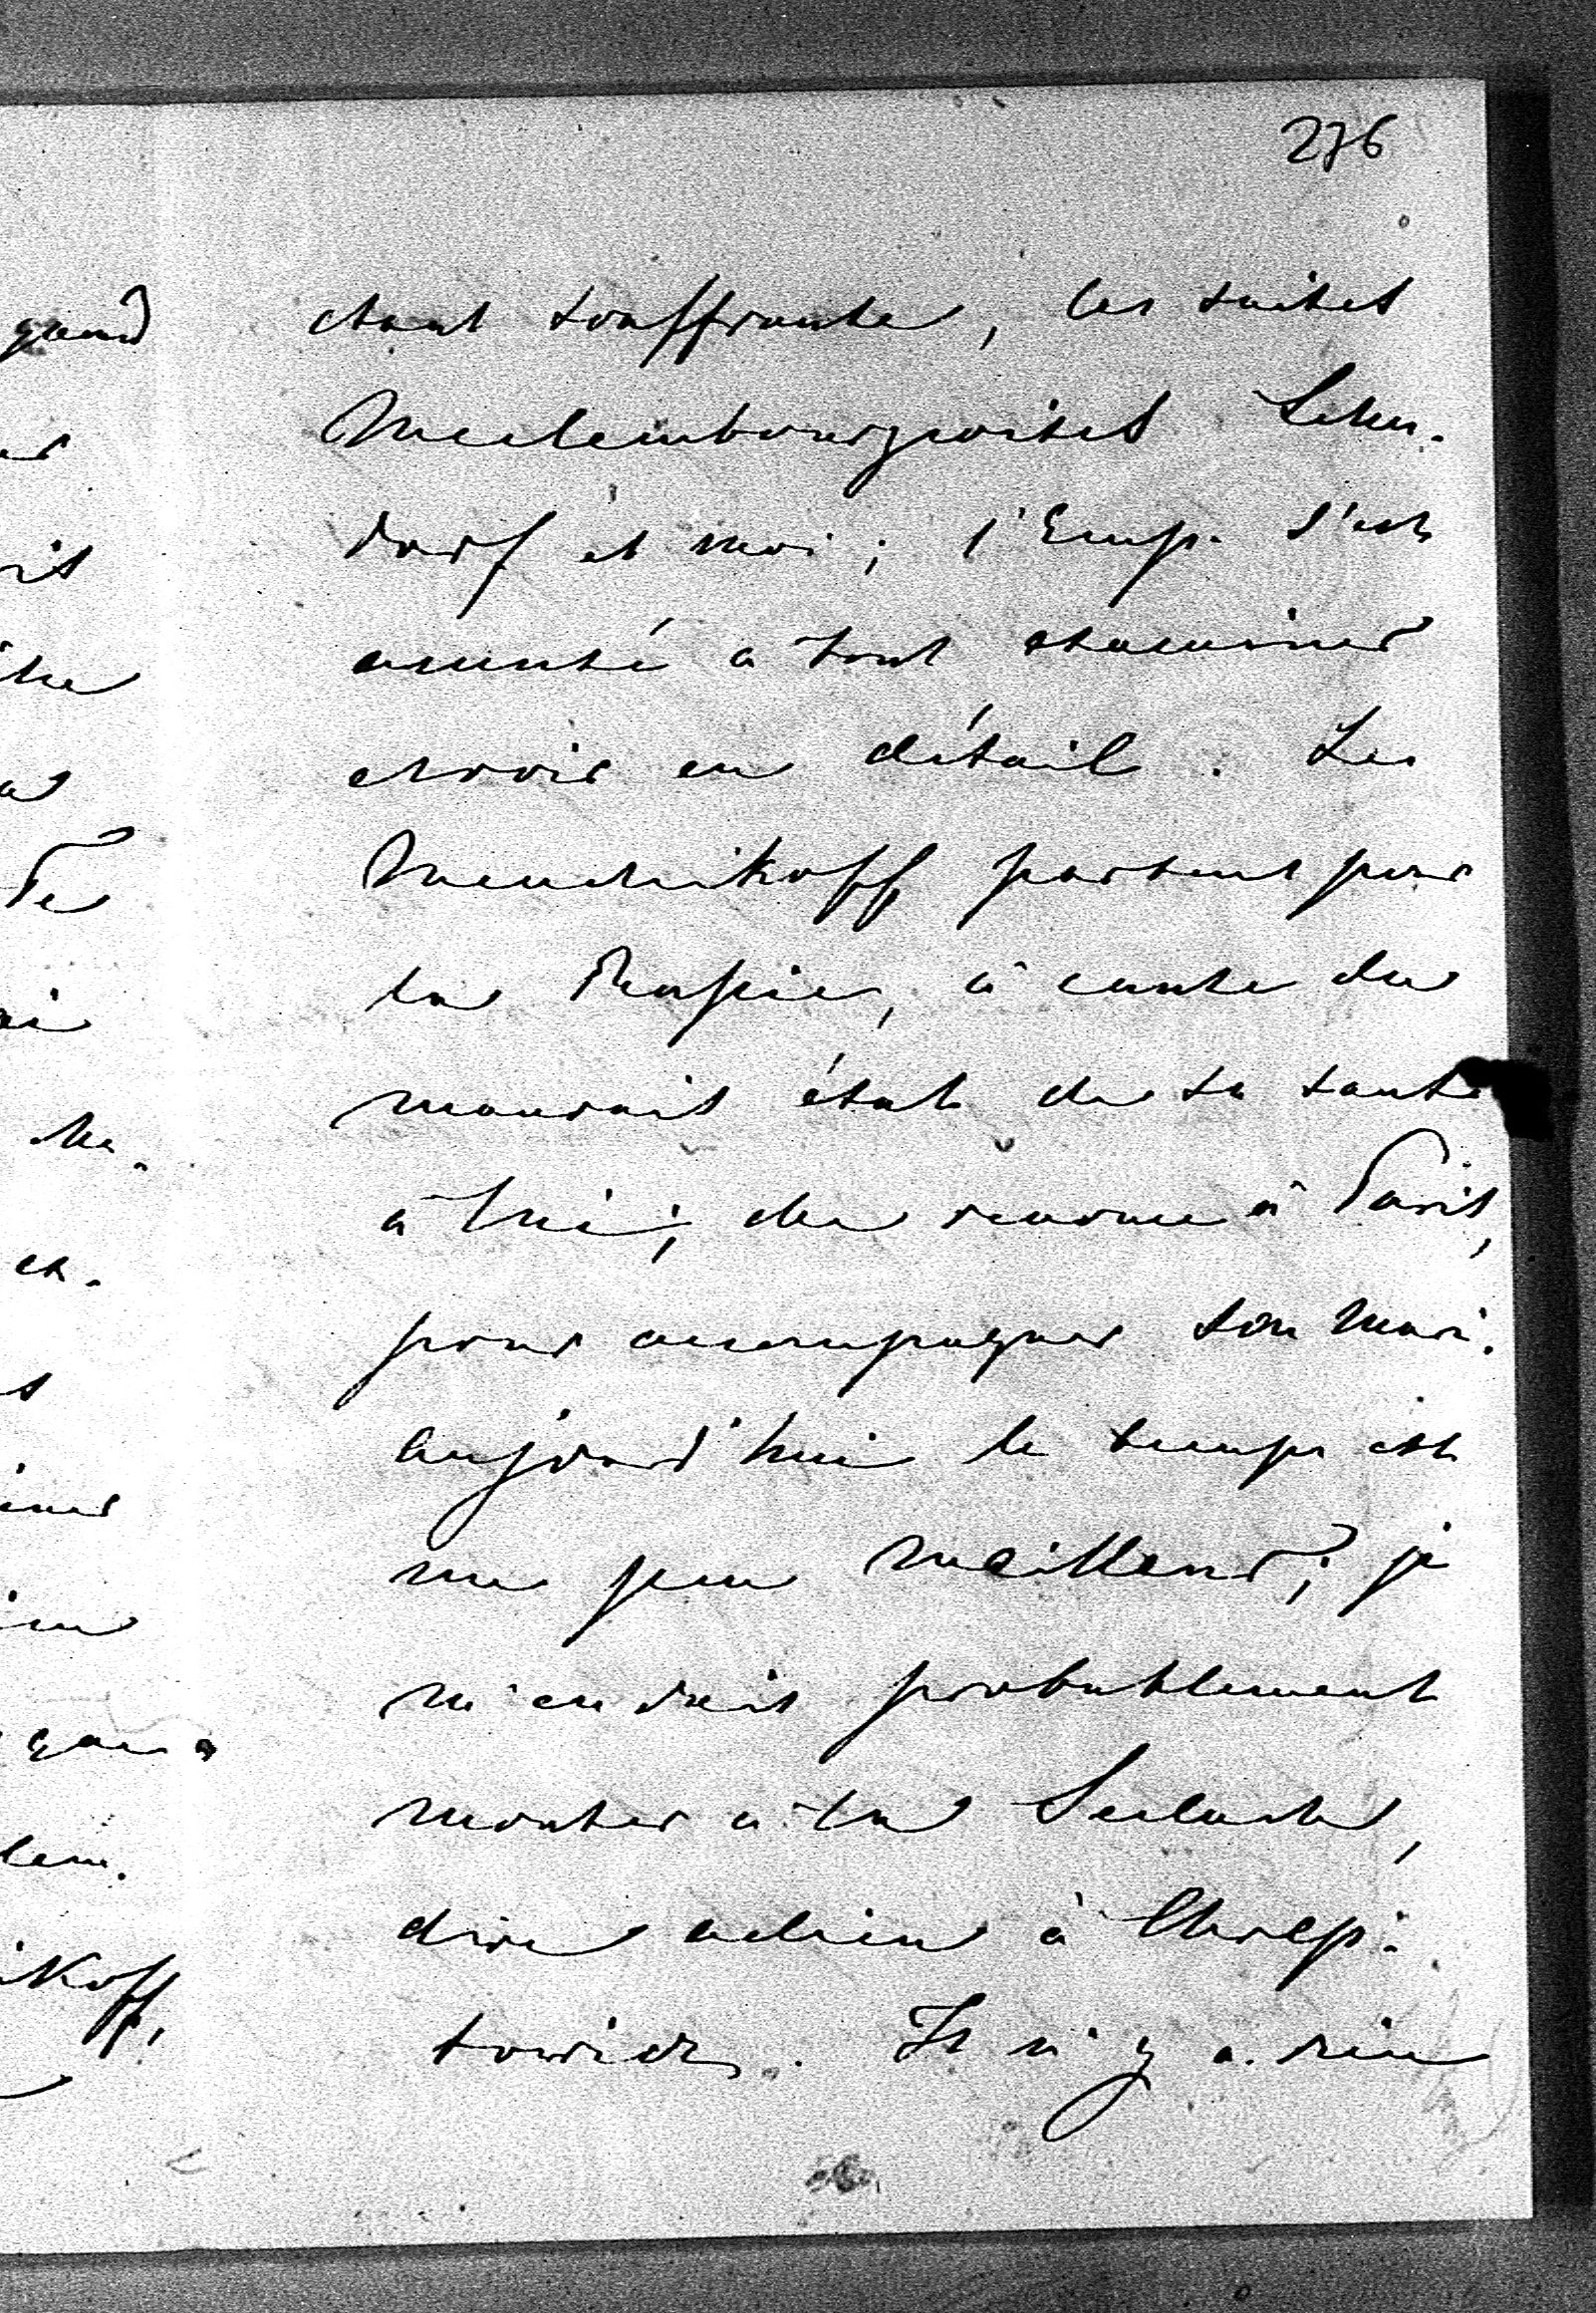 276
étant souffrante, les suites
Meclembourgeoises Lehn-
dorf et moi; l'Emp. s'est
amusé a tout examiner
et voir en détail. Les
Menchikoff partent pour
la Russie, à cause du
mauvais état de sa santé
à lui; elle renonce à Paris,
pour accompagner son mari.
aujourd'hui le temps est
un peu meilleur; je
m'en vais probablement
monter à la
dire adieu à Chrep-
towicz. Il n'y a rien
gand
Te
ai
ikoff,